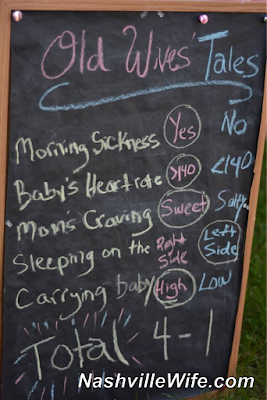 Old Wives' Tales
Morning Sickness Yes No
Baby's Heartrate >140 <140
Mom's Craving Sweet Salty
Sleeping on the Right Side Left Side
Carrying baby High Low
Total 4-1
NashvilleWife.com